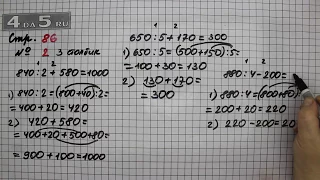 4DA5.RU
Стр. 86
№ 2 3 столбик
1 2
840:2+580=1000
1) 840:2=(800+40):2=
=400+20=420
2) 420+580=
=400+20+500+80=
=900+100=1000
1 2
650:5+170=300
1) 650:5=(500+150):5=
=100+30=130
2) 130+170=
=300
1 2
880:4-200=
1) 880:4=(800+80):
=200+20=220
2) 220-200=20